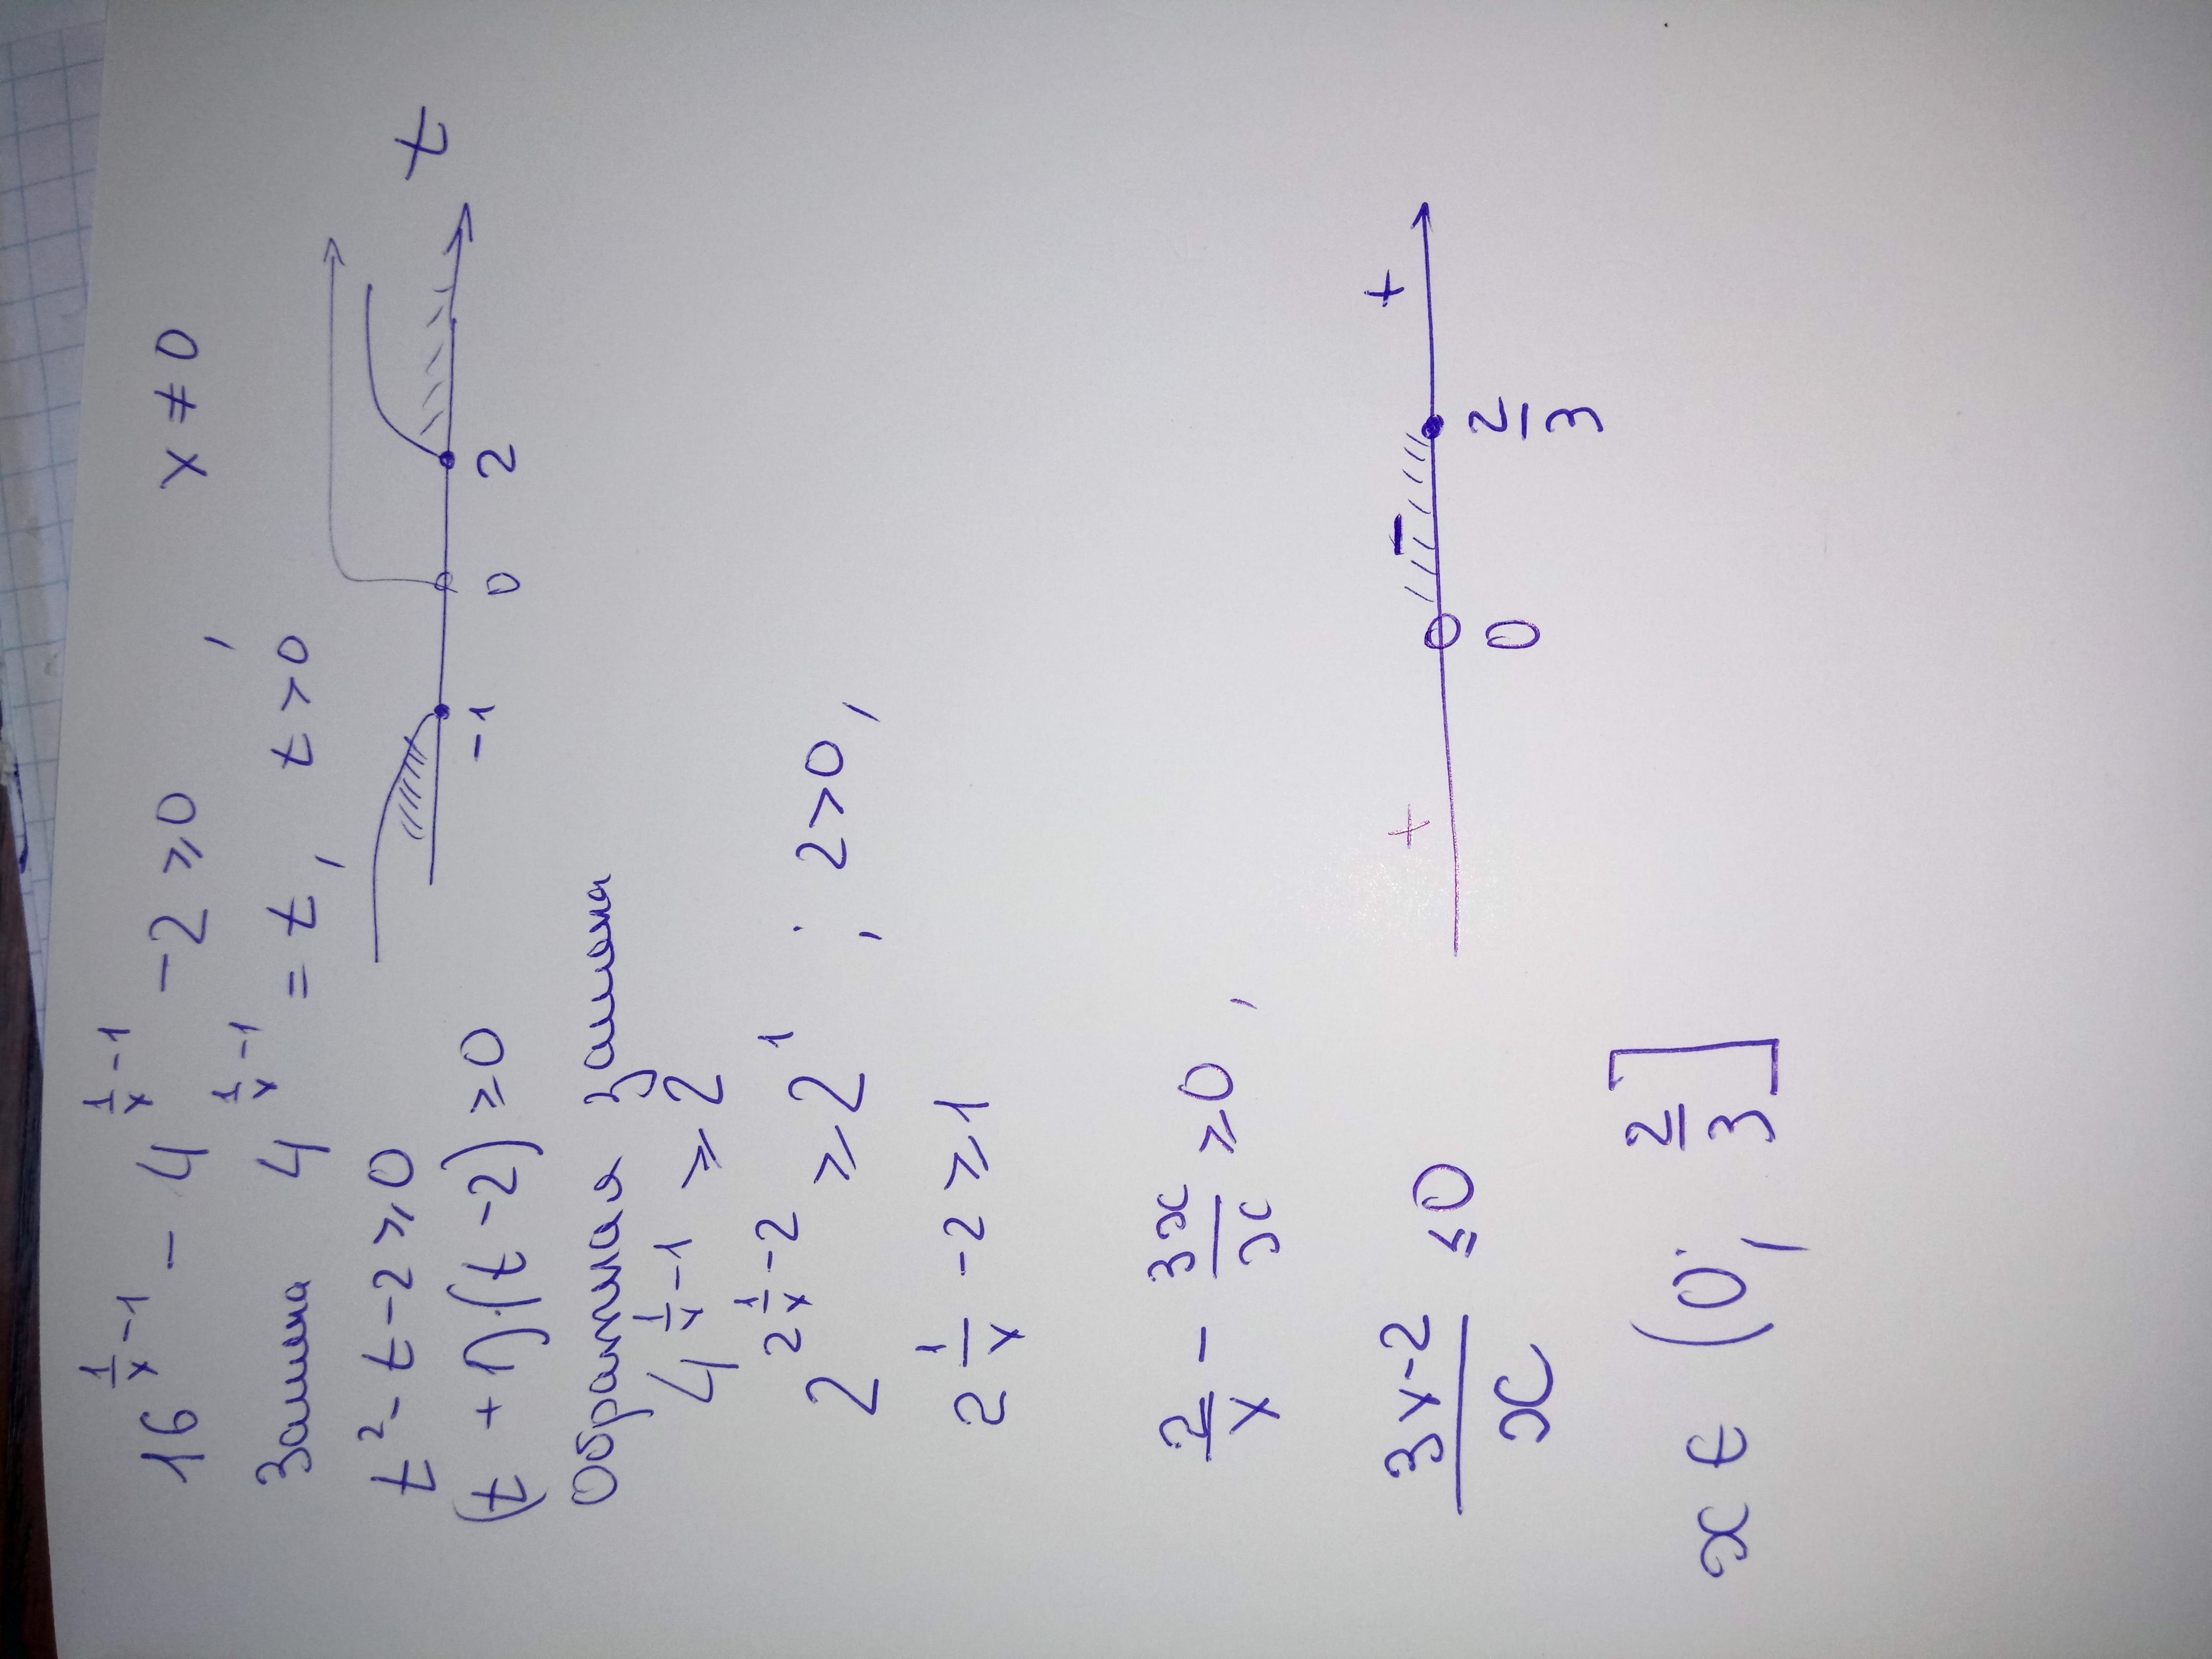 16^(1/x −1) − 4^(1/x −1) −2 ≥ 0, x ≠ 0
Замена 4^(1/x −1) = t, t > 0
t² − t − 2 ≥ 0,
(t + 1)·(t − 2) ≥ 0
−1 0 2 t
Обратная замена
4^(1/x −1) ≥ 2
2^(2 1/x −2) ≥ 2^1; 2>0,
2 1/x −2 ≥ 1
2/x − 3x/x ≥ 0,
(3x−2)/x ≤ 0
+ − +
0 2/3
x ∈ (0; 2/3]